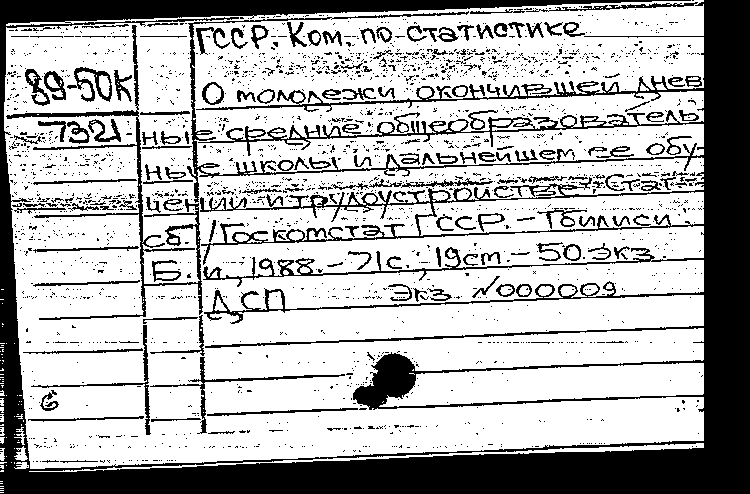 ГССР. Ком. по статистике
89-50К
О молодежи, окончившей днев
7321
ные средние общеобразователь
ные школы и дальнейшем ее обу-
чении и трудоустройстве: Стат.
сб. / Госкомстат ГССР. - Тбилиси:
Б. и., 1988. - 71 с.; 19 см. - 50 экз.
ДСП Экз. №000009
6